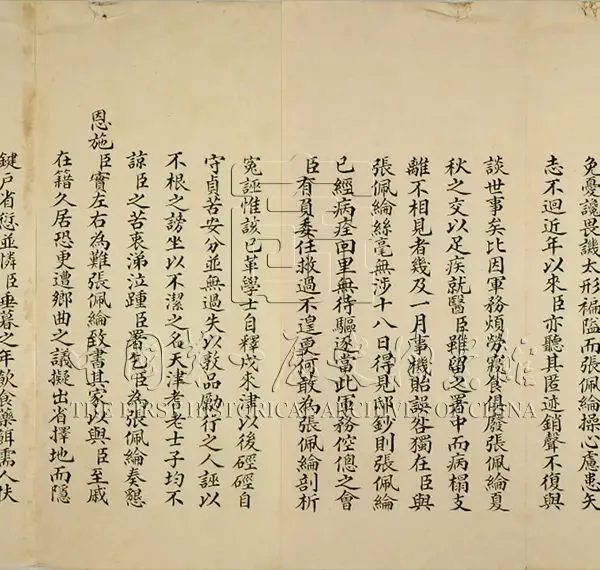 免憂讒畏譏太形褊隘而張佩綸操心慮患矢
志不迴近年以來臣亦聽其匿迹銷聲不復與
談世事矣比因軍務煩勞寢食俱廢張佩綸夏
秋之交以足疾就醫臣雖留之署中而病榻支
離不相見者幾及一月事機貽誤咎獨在臣與
張佩綸絲毫無涉十八日得見邸鈔則張佩綸
已經病痊回里無待驅逐當此軍務倥傯之會
臣有員委任救過不遑更何敢為張佩綸剖析
冤誣惟該已革學士自釋戍來津以後硜硜自
守貞苦安分並無過失以敦品勵行之人誣以
不根之謗坐以不潔之名天津耆老士子均不
諒臣之苦衷涕泣踵臣署乞臣為張佩綸奏懇
恩施臣實左右為難張佩綸致書其家以與臣至戚
在籍久居恐更遭鄉曲之議擬出省擇地而隱
鍵戶省愆並憐臣垂暮之年飲食藥餌需人扶
THE FIRST HISTORICAL ARCHIVES OF CHINA